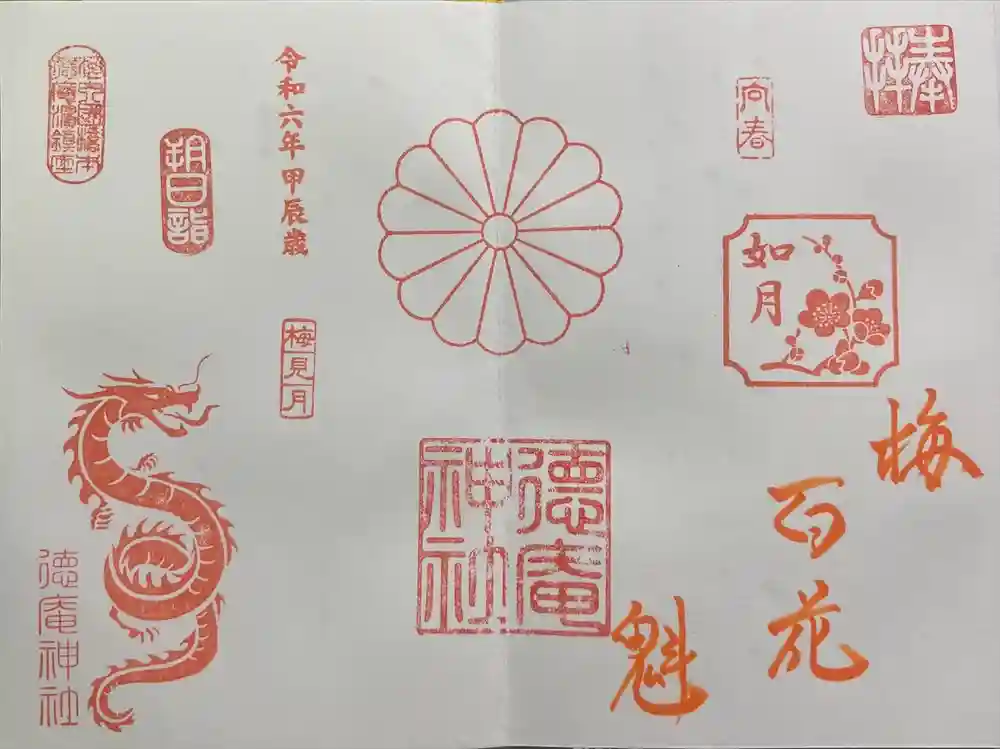 奉拝
向春
如月
梅
百花
魁
徳庵
神社
令和六年甲辰歳
梅見月
朔日詣
徳庵神社